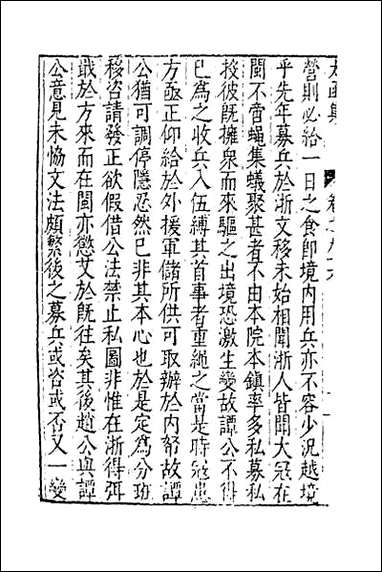 太函集
卷之九十六
營則必給一日之食卽境内用兵亦不容少況越境
乎先年募兵於浙文移未始相聞浙人皆聞大寇在
閩不啻蠅集蟻聚甚者不由本院本鎮率多私募私
投彼旣擁衆而來驅之出境恐激生變故譚公不得
已為之收兵入伍縛其首事者重繩之當是時寇患
方亟正仰給於外援軍儲所供可取辦於内帑故譚
公猶可調停隱忍然已非其本心也於是定為分班
移咨請發正欲假借公法禁止私圖非惟在浙得弭
戢於方來而在閩亦懲艾於旣往矣其後趙公與譚
公意見未協文法頗繁後之募兵或咨或否又一變